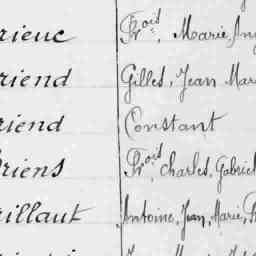 rieuc Frois, Marie, Ang
riend Gilles, Jean Mar
riend Constant
riens Frois, Charles, Gabriel
rillaut Antoine, Jean, Marie, F